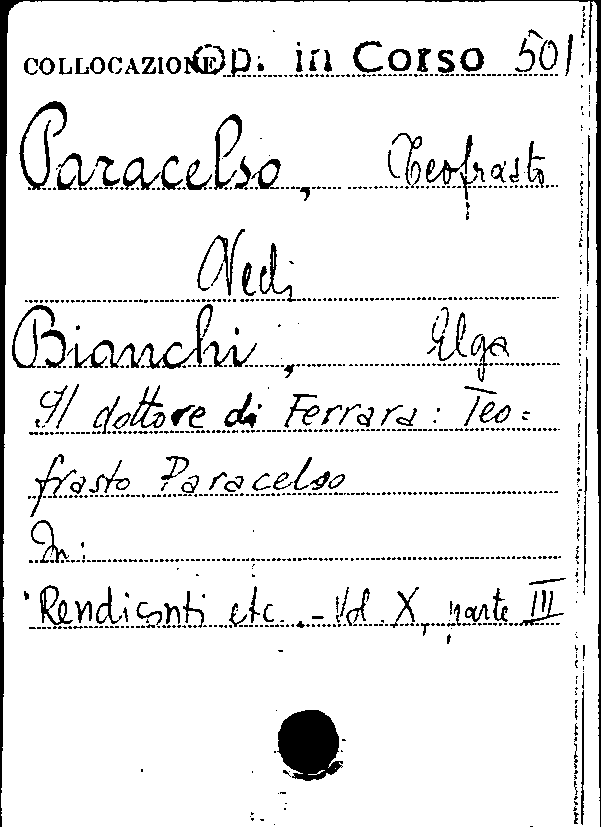 COLLOCAZIONE Op. in Corso 501
Paracelso, Teofrasto
Vedi
Bianchi, Elga
Il dottore di Ferrara: Teo=
frasto Paracelso
In:
Rendiconti etc. - Vol. X, parte III